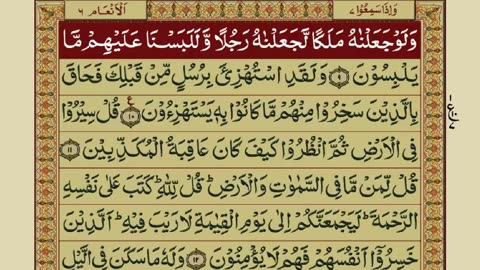 وَاِذَاسَمِعُوْا۷ اَلْاَنْعَام ۶
وَلَوْ جَعَلْنٰهُ مَلَكًا لَّجَعَلْنٰهُ رَجُلًا وَّلَلَبَسْنَا عَلَيْهِمْ مَّا
يَلْبِسُوْنَ ۹ وَلَقَدِ اسْتُهْزِئَ بِرُسُلٍ مِّنْ قَبْلِكَ فَحَاقَ
بِالَّذِيْنَ سَخِرُوْا مِنْهُمْ مَّا كَانُوْا بِهٖ يَسْتَهْزِءُوْنَ ۱۰ ع قُلْ سِيْرُوْا
فِى الْاَرْضِ ثُمَّ انْظُرُوْا كَيْفَ كَانَ عَاقِبَةُ الْمُكَذِّبِيْنَ ۱۱
قُلْ لِّمَنْ مَّا فِى السَّمٰوٰتِ وَالْاَرْضِ ؕ قُلْ لِّلّٰهِ ؕ كَتَبَ عَلٰى نَفْسِهِ
الرَّحْمَةَ ؕ لَيَجْمَعَنَّكُمْ اِلٰى يَوْمِ الْقِيٰمَةِ لَا رَيْبَ فِيْهِ ؕ اَلَّذِيْنَ
خَسِرُوْۤا اَنْفُسَهُمْ فَهُمْ لَا يُؤْمِنُوْنَ ۱۲ وَلَهٗ مَا سَكَنَ فِى الَّيْلِ